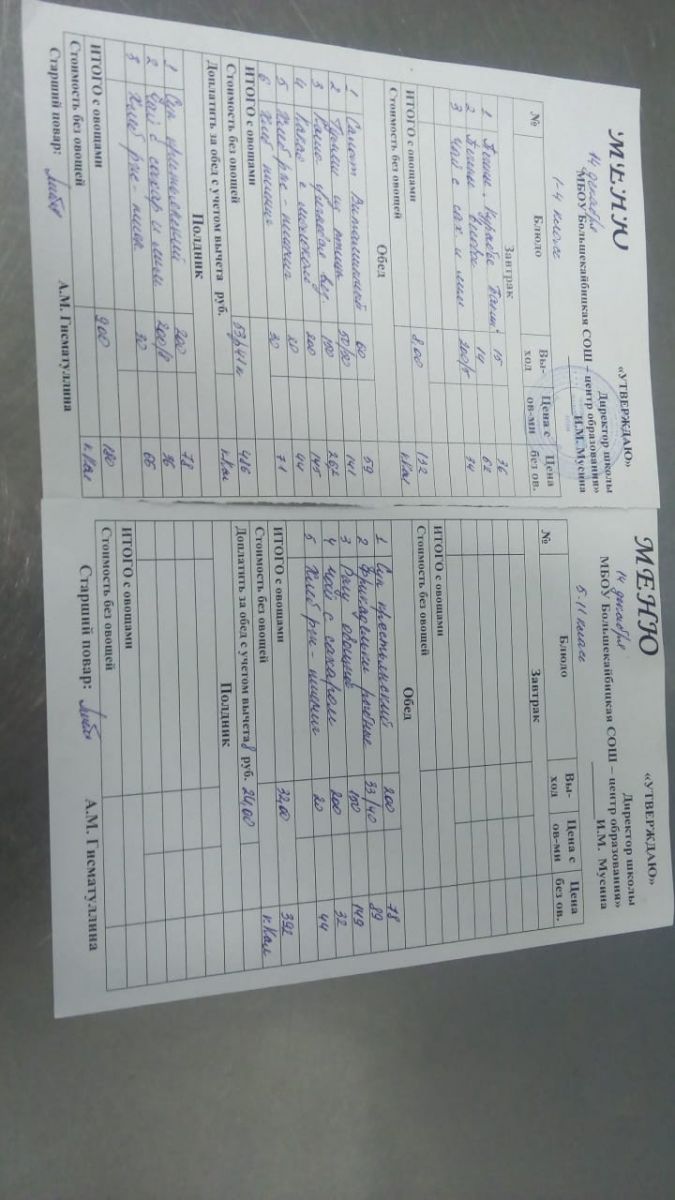 МЕНЮ
«УТВЕРЖДАЮ»
Директор школы
14 декабря
МБОУ Большекайбицкая СОШ – центр образования»
И.М. Мусина
1-4 класс
№ Блюдо Вы-ход Цена с ов-ми Цена без ов.
Завтрак
1 15 36
2 14 62
3 Чай с сах и лим 200/5 34
ИТОГО с овощами 8,00 132
Стоимость без овощей к.Кал
Обед
1 Салат Витаминный 60 59
2 из птицы 50/50 141
3 Каша 150 262
4 Какао с молоком 200 145
5 Хлеб рж - пшенич 20 44
6 Хлеб пшенич 30 71
ИТОГО с овощами
Стоимость без овощей 53,41 к.Кал
Доплатить за обед с учетом вычета руб.
Полдник
1 Суп крестьянский 200 78
2 Чай с сахар и лим 200/8 36
3 Хлеб рж пшен 30 66
ИТОГО с овощами 9,00 180
Стоимость без овощей к.Кал
Старший повар: А.М. Гисматуллина
МЕНЮ
«УТВЕРЖДАЮ»
Директор школы
14 декабря
МБОУ Большекайбицкая СОШ – центр образования»
И.М. Мусина
5-11 класс
№ Блюдо Вы-ход Цена с ов-ми Цена без ов.
Завтрак
ИТОГО с овощами
Стоимость без овощей
Обед
1 Суп крестьянский 200 78
2 Фрикадельки 53/40 89
3 Рагу овощное 150 149
4 Чай с сахаром 200 32
5 Хлеб рж - пшенич 20 44
ИТОГО с овощами 32,00 392
Стоимость без овощей к.Кал
Доплатить за обед с учетом вычета 8 руб. 24,00
Полдник
ИТОГО с овощами
Стоимость без овощей
Старший повар: А.М. Гисматуллина